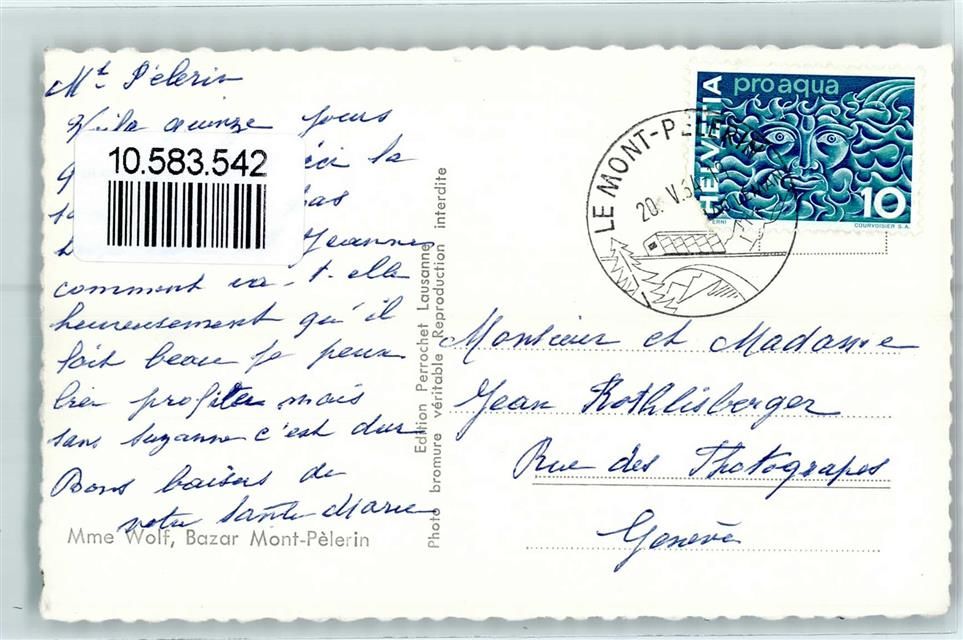 Mt Pèlerin
Voila quinze jours
la
pas
Jeanne
comment va-t-elle
heureusement qu'il
fait beau je peux
bien profiter mais
sans Suzanne c'est dur
Bons baisers de
votre tante Marie
Mme Wolf, Bazar Mont-Pèlerin
10.583.542
Edition Perrochet Lausanne
Photo bromure véritable Reproduction interdite
LE MONT-PELERIN
20. V.
HELVETIA
pro aqua
10
COURVOISIER S.A.
Monsieur et Madame
Jean Rothlisberger
Rue des Photograpes
Genève